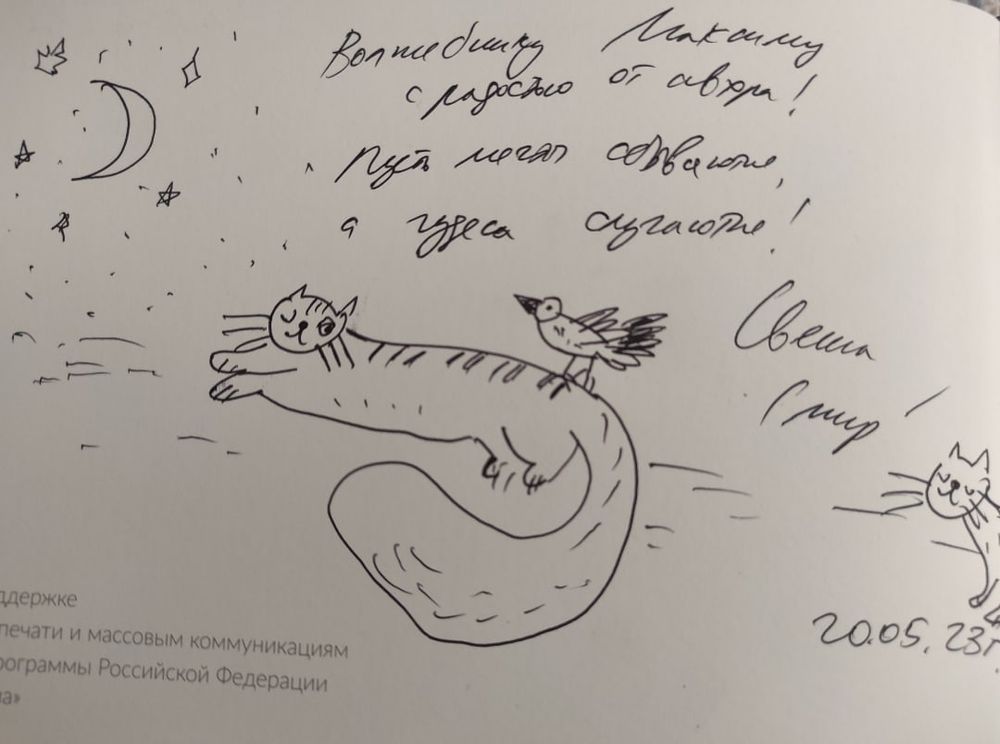 Волшебнику Максиму
с радостью от автора!
Пусть мечты сбываются,
а чудеса случаются!
Света
20.05.23г.
ддержке
печати и массовым коммуникациям
рограммы Российской Федерации
на»